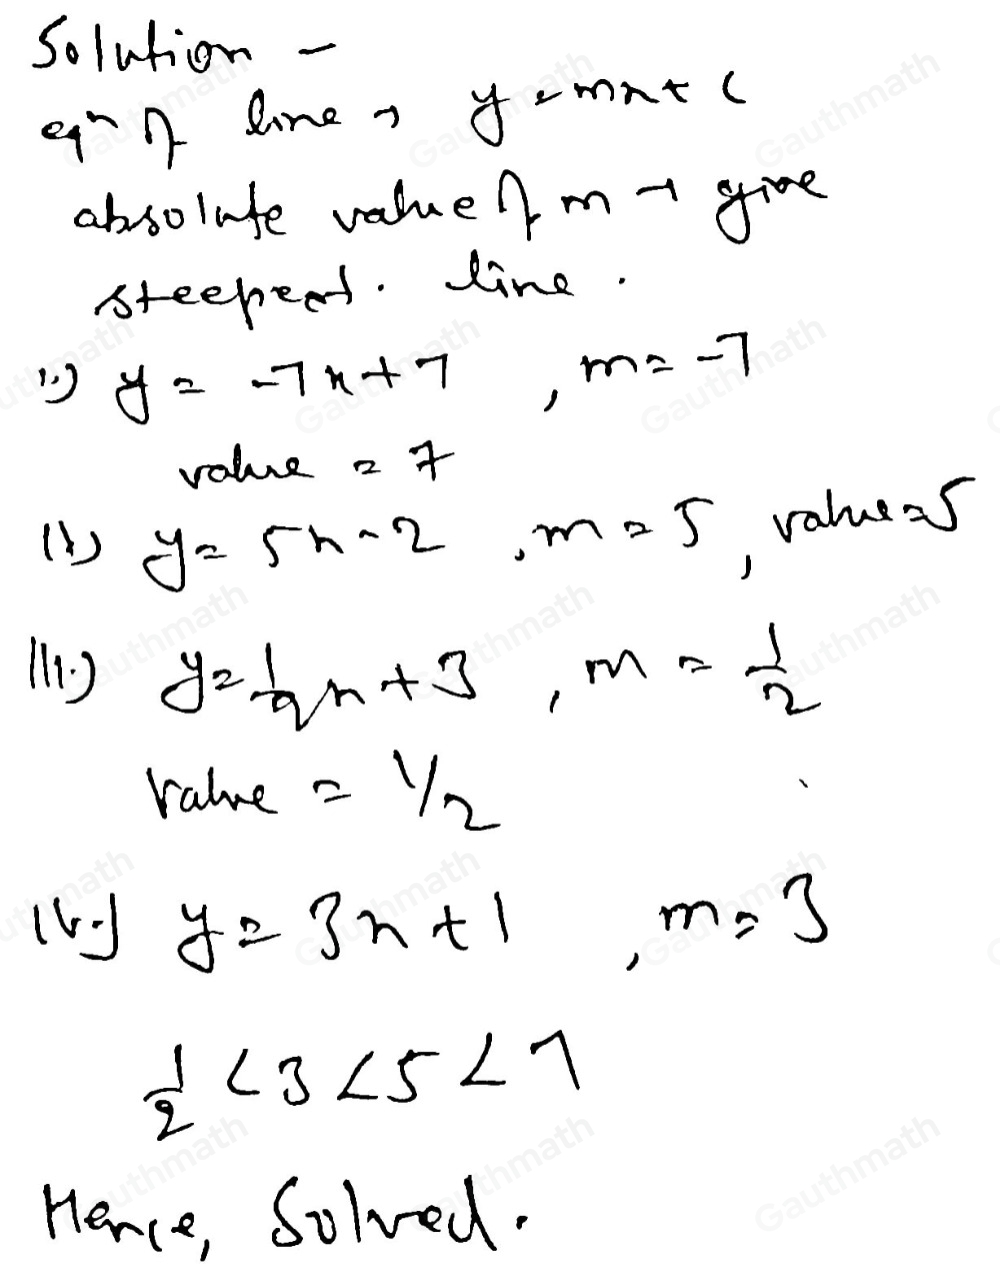 Solution -
eqn of line → y = mx + c
absolute value of m → give
steepest. line.
i.) y = -7x + 7, m = -7
value = 7
ii) y = 5x - 2, m = 5, value = 5
iii.) y = 1/2 x + 3, m = 1/2
value = 1/2
iv.) y = 3x + 1, m = 3
1/2 < 3 < 5 < 7
Hence, Solved.